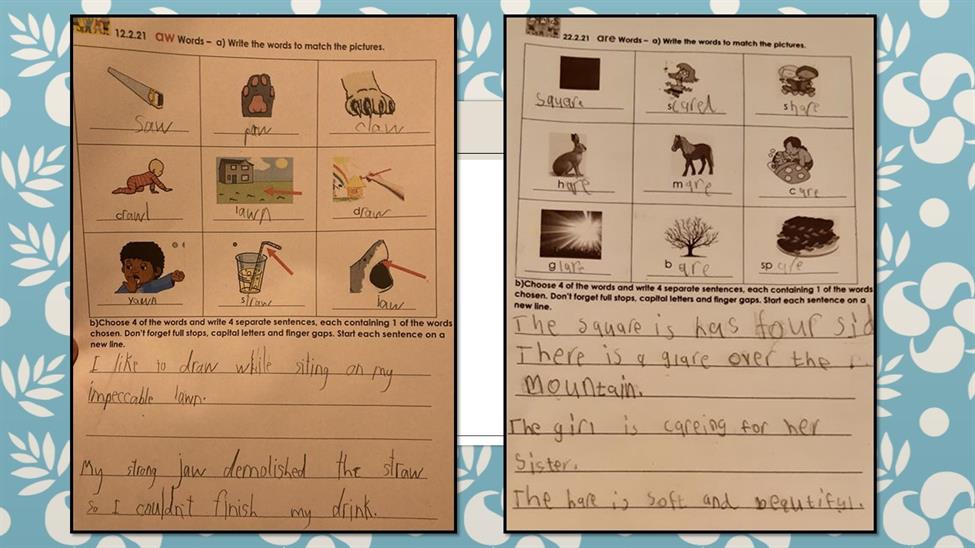 12.2.21 aw Words – a) Write the words to match the pictures.
saw paw claw
crawl lawn draw
yawn straw jaw
b)Choose 4 of the words and write 4 separate sentences, each containing 1 of the words
chosen. Don't forget full stops, capital letters and finger gaps. Start each sentence on a
new line.
I like to draw while siting on my
impeccable lawn.
My strong jaw demolished the straw
so I couldn't finish my drink.
22.2.21 are Words – a) Write the words to match the pictures.
square scared share
hare mare care
glare bare spare
b)Choose 4 of the words and write 4 separate sentences, each containing 1 of the words
chosen. Don't forget full stops, capital letters and finger gaps. Start each sentence on a
new line.
The square is has four sid
There is a glare over the
mountain.
The girl is careing for her
sister.
The hare is soft and beautiful.